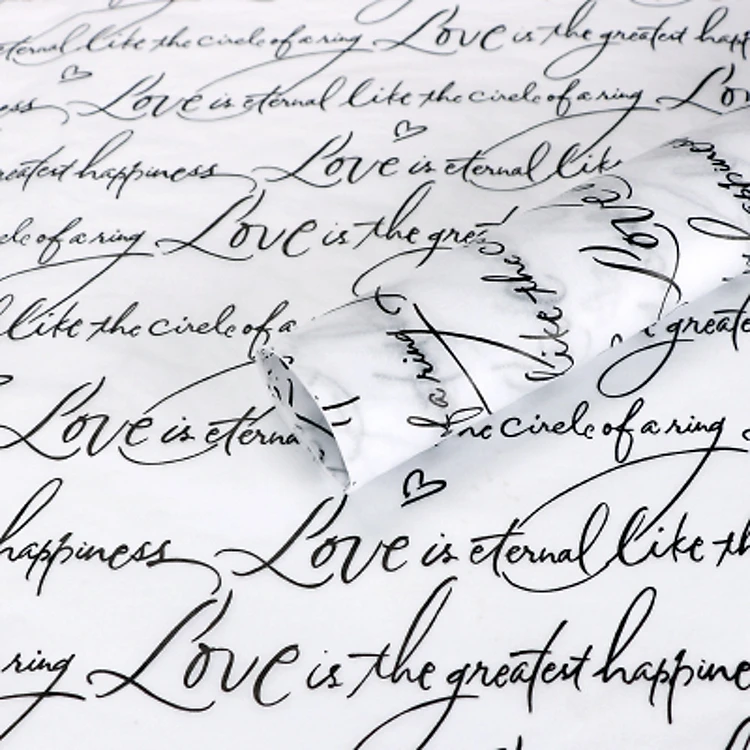 eternal like the circle of a ring Love is the greatest happ
ess Love is eternal like the circle of a ring Lov
reatest happiness Love is eternal lik
cle of a ring Love is the gre
like the circle of a
like the
Love
a ring
greate
Love is eterna
he circle of a ring
happiness Love is eternal like th
ring Love is the greatest happine